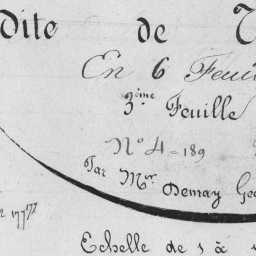 dite de
En 6 Feui
3ème Feuille
N° 4 - 189
Par Mr. Demay Geo
Echelle de 1 à